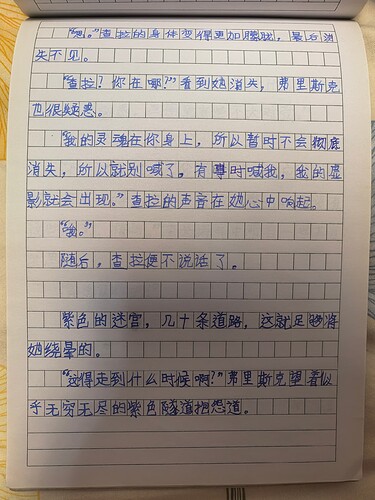 “嗯。”查拉的身体变得更加朦胧，最后消
失不见。
“查拉？你在哪？”看到她消失，弗里斯克
也很疑惑。
“我的灵魂在你身上，所以暂时不会彻底
消失，所以就别喊了。有事时喊我，我的虚
影就会出现。”查拉的声音在她心中响起。
“哦。”
随后，查拉便不说话了。
紫色的迷宫，几十条道路，这就足够将
她绕晕的。
“这得走到什么时候啊？”弗里斯克望着似
乎无穷无尽的紫色隧道抱怨道。